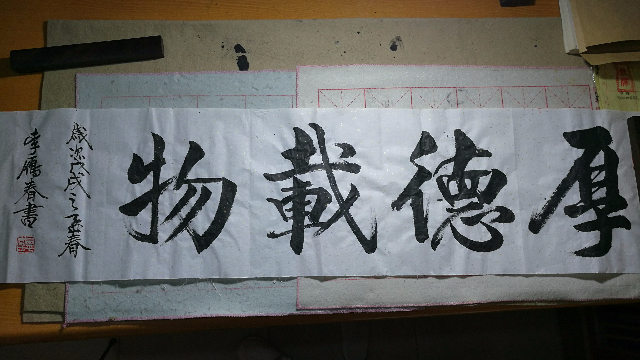 厚德載物
歲次戊戌之孟春
李春書